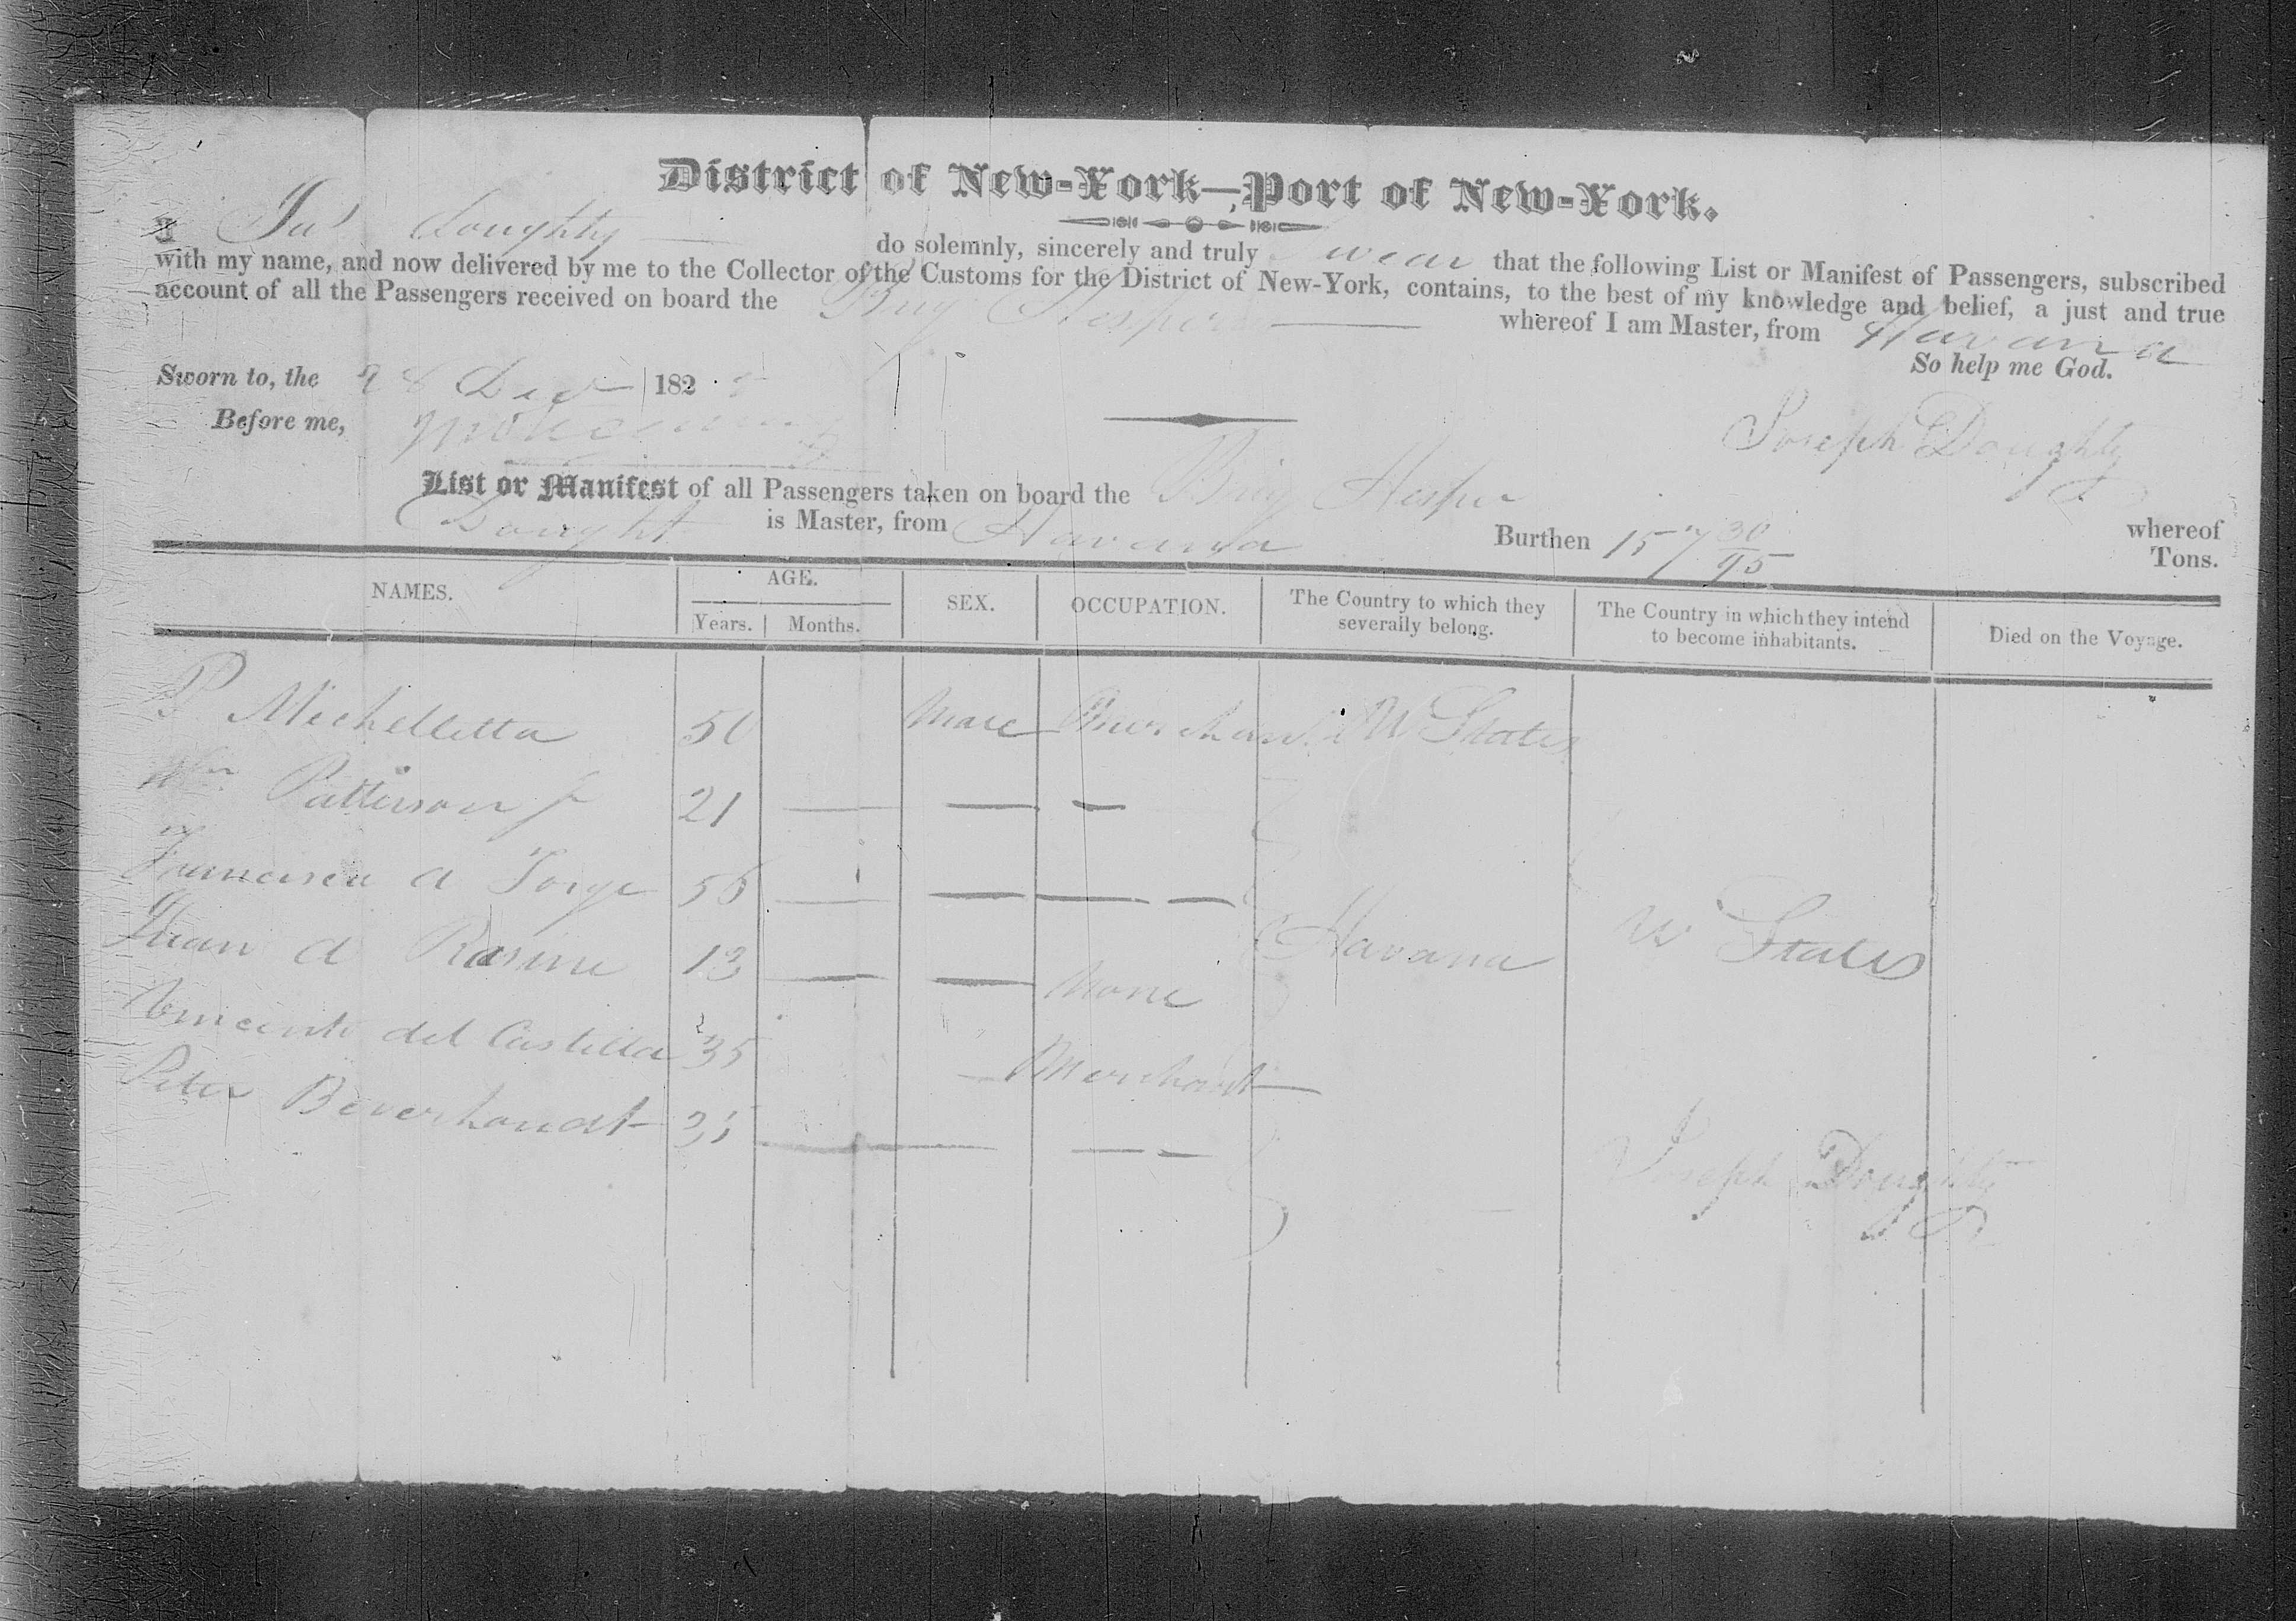 District of New-York—Port of New-York.
I Jas Doughty do solemnly, sincerely and truly swear that the following List or Manifest of Passengers, subscribed
with my name, and now delivered by me to the Collector of the Customs for the District of New-York, contains, to the best of my knowledge and belief, a just and true
account of all the Passengers received on board the Brig Hesper whereof I am Master, from Havana
So help me God.
Sworn to, the 28 Dec 182
Before me,
Joseph Doughty
List or Manifest of all Passengers taken on board the Brig Hesper whereof
Dought is Master, from Havana Burthen 157 30/95 Tons.
NAMES. AGE. Years. Months. SEX. OCCUPATION. The Country to which they severally belong. The Country in which they intend to become inhabitants. Died on the Voyage.
P Michelletta 50 Male Merchant U States
Wm Patterson Jr 21 — — —
Francisca A Jorge 56 — — — —
Juan A Rasine 13 — — None Havana U States
del Castilla 35 Merchant
Peter Beverhoudt 35 — — —
Joseph Doughty